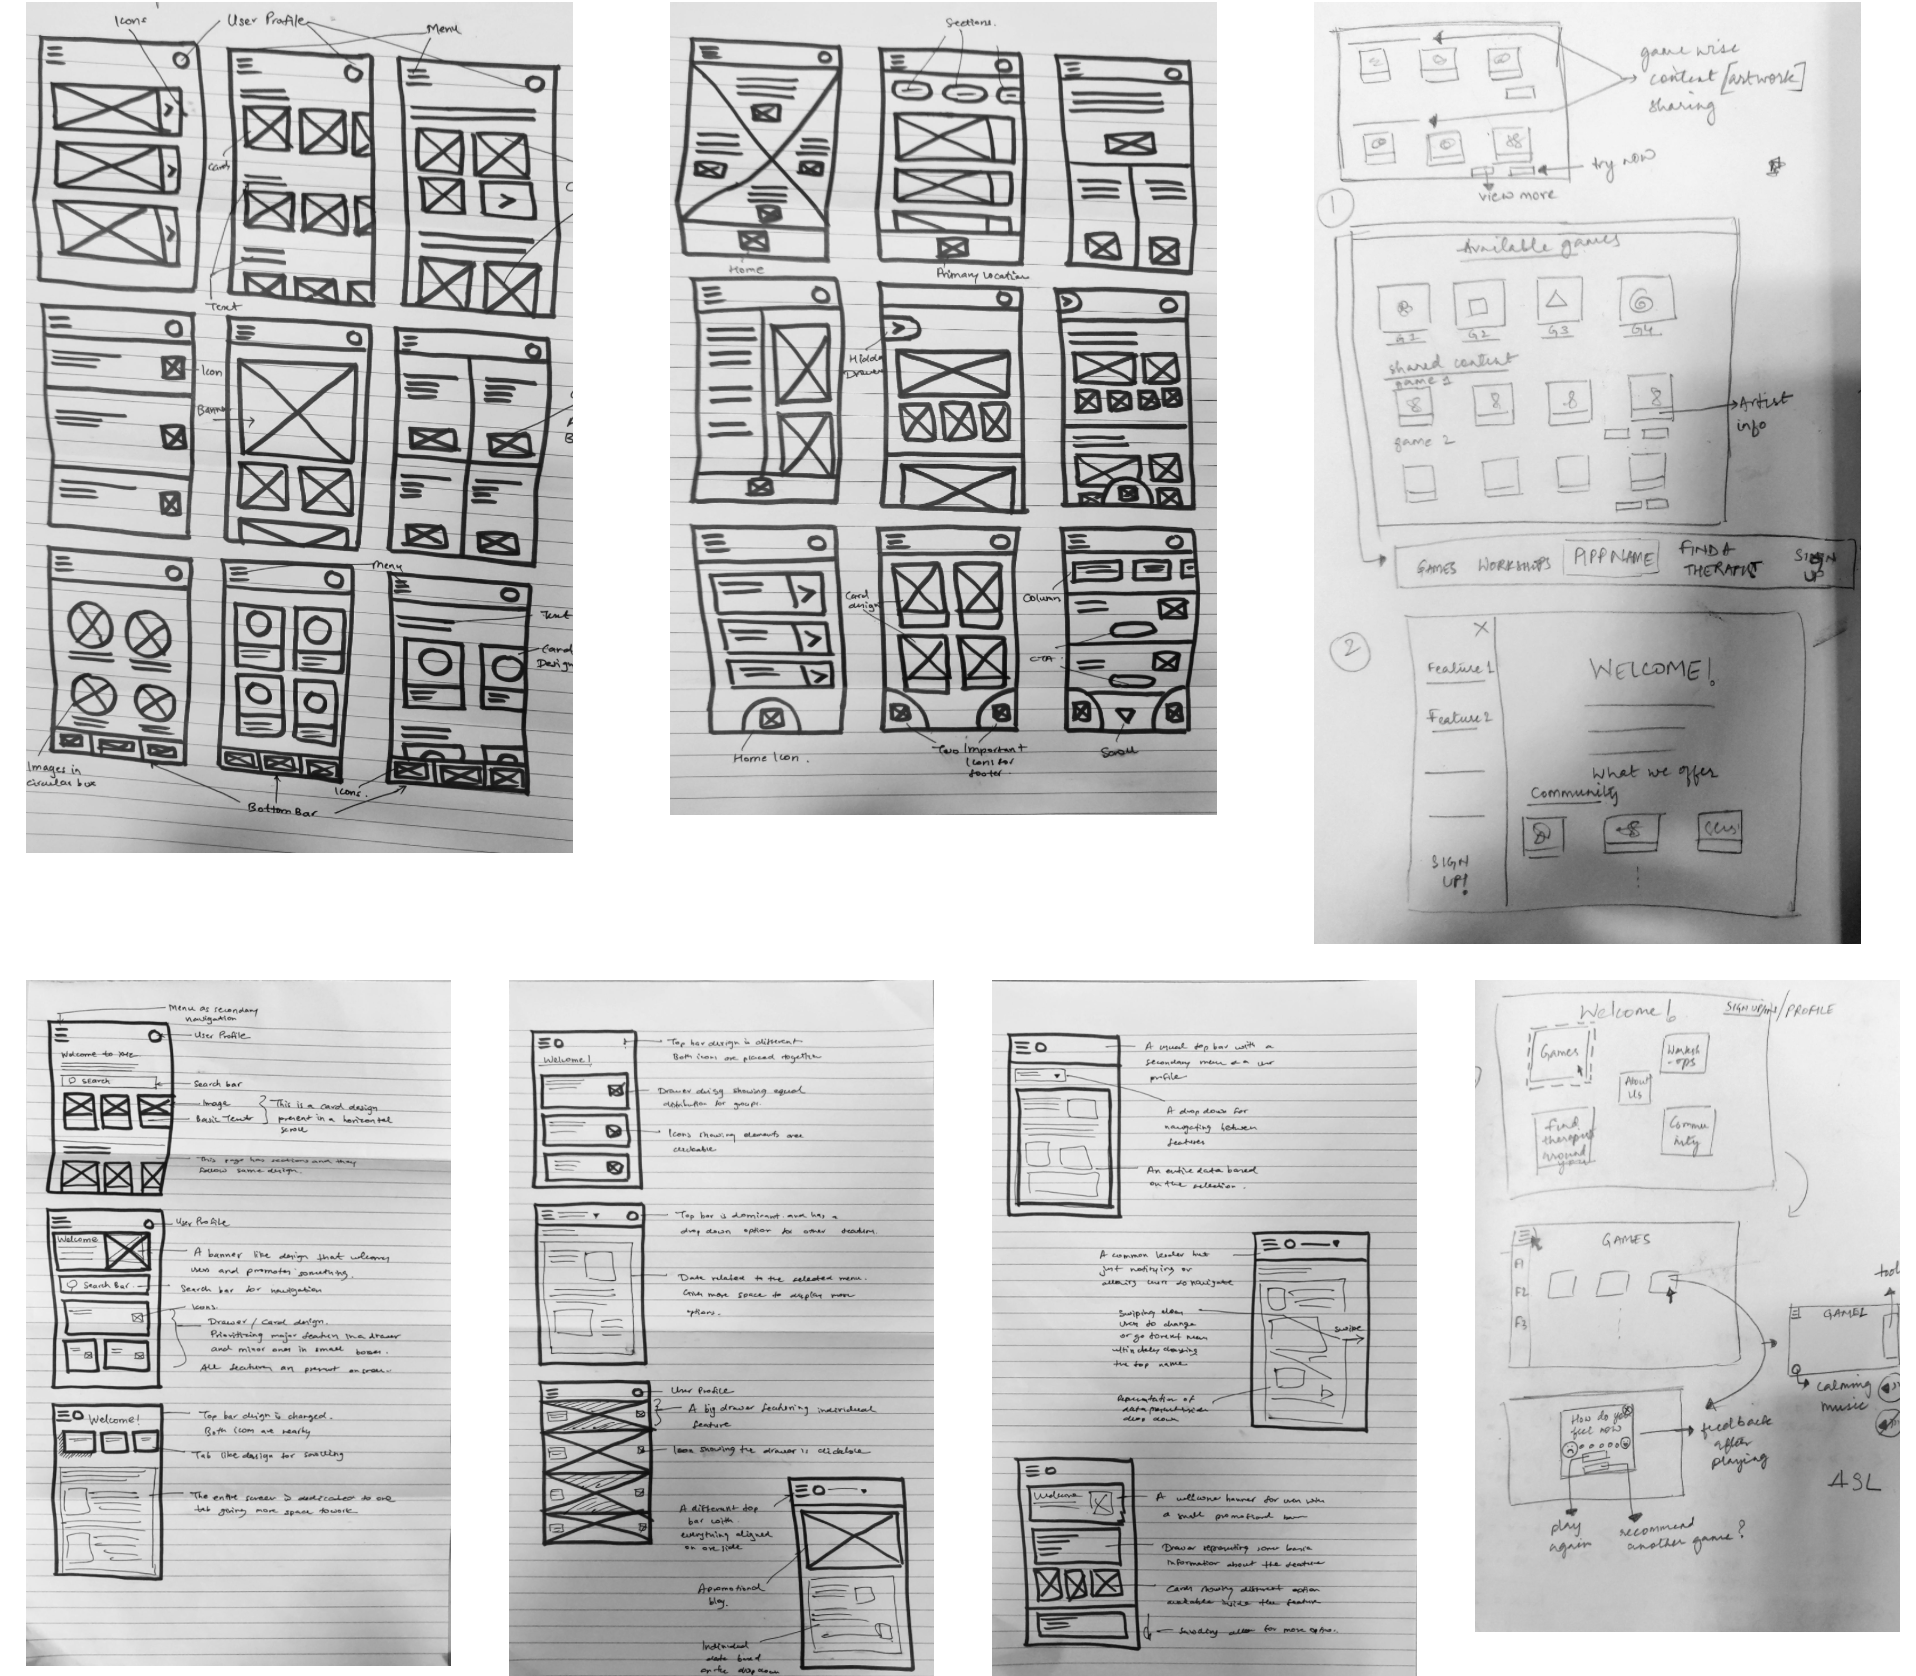 Icons
User Profile
Menu
Cards
Text
Icon
Banner
Menu
Text
Card
Design
Images in
circular box
Icons.
Bottom Bar
Sections.
Home
Primary Location
Hidden
Drawer
Card
design
Column
CTA
Home Icon.
Two Important
Icons for
footer
Scroll
game wise
content [artwork]
sharing
try now
view more
1
Available games
G1
G2
G3
G4
shared content
game 1
Artist
info
game 2
GAMES
WORKSHOPS
APP NAME
FIND A
THERAPIST
SIGN
UP
2
X
Feature 1
Feature 2
SIGN
UP!
WELCOME!
What we offer
Community
Menu as secondary
navigation
User Profile
Welcome to
Search
Search bar
Image
Basic Text
This is a card design
present in a horizontal
scroll
This page has sections and they
follow same design.
User Profile
Welcome
A banner like design that welcomes
users and promotes something.
Search Bar
Search bar for navigation
Icons.
Drawer / Card design.
Prioritizing major feature in a drawer
and minor ones in small boxes.
All features are present on screen.
Welcome!
Top bar design is changed.
Both icons are nearby
Tab like design for scrolling
The entire screen is dedicated to one
tab giving more space to work.
Welcome!
Top bar design is different
Both icons are placed together
Drawer design showing equal
distribution for groups.
Icons showing elements are
clickable
Top bar is dominant and has a
drop down option for other headers.
Data related to the selected menu.
Gives more space to display more
options.
User Profile
A big drawer featuring individual
feature
Icon showing the drawer is clickable
A different top
bar with
everything aligned
on one side
A promotional
blog.
Individual
data based
on the drop down
A usual top bar with a
secondary menu and user
profile
A drop down for
navigating between
features
An entire data based
on the selection.
A common header but
just notifying or
allowing users to navigate
Swiping allows
users to change
or go to next menu
ultimately changing
the top name
swipe
Representation of
data
drop down
Welcome
A welcome banner for users with
a small promotional
Drawer representing some basic
information about the feature
Cards showing different option
available inside the feature
Scrolling for more options.
Welcome!
PROFILE
Games
Worksh
-ops
About
Us
Find
therapist
around
you
Commu
nity
GAMES
F1
F2
F3
GAME1
calming
music
How do you
feel now
feedback
after
playing
ASL
play
again
recommend
another game?